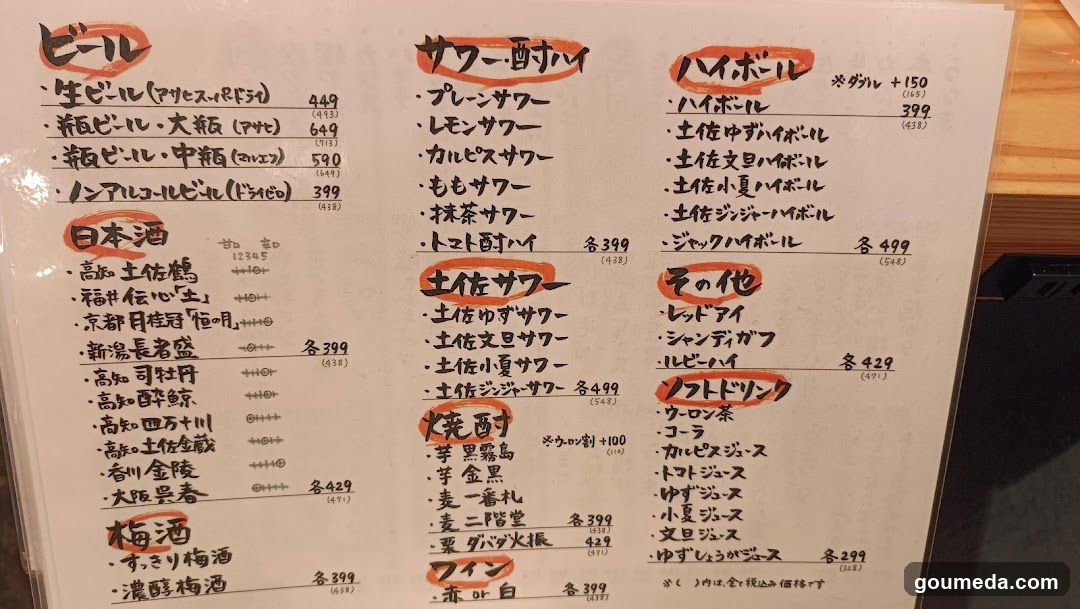 ビール
・生ビール(アサヒスーパードライ) 449
(493)
・瓶ビール・大瓶(アサヒ) 649
(713)
・瓶ビール・中瓶(マルエフ) 590
(649)
・ノンアルコールビール(ドライゼロ) 399
(438)
日本酒
甘口 辛口
12345
・高知 土佐鶴
・福井 伝心「土」
・京都 月桂冠「恒の月」
・新潟 長者盛 各399
(438)
・高知 司牡丹
・高知 酔鯨
・高知 四万十川
・高知 土佐金蔵
・香川 金陵
・大阪 呉春 各429
(471)
梅酒
・すっきり梅酒
・濃醇梅酒 各399
(438)
サワー・酎ハイ
・プレーンサワー
・レモンサワー
・カルピスサワー
・ももサワー
・抹茶サワー
・トマト酎ハイ 各399
(438)
土佐サワー
・土佐ゆずサワー
・土佐文旦サワー
・土佐小夏サワー
・土佐ジンジャーサワー 各499
(548)
焼酎
※ウーロン割 +100
(110)
・芋 黒霧島
・芋 金黒
・麦 一番札
・麦 二階堂 各399
(438)
・栗 ダバダ火振 429
(471)
ワイン
・赤 or 白 各399
(438)
ハイボール
※ダブル +150
(165)
・ハイボール 399
(438)
・土佐ゆずハイボール
・土佐文旦ハイボール
・土佐小夏ハイボール
・土佐ジンジャーハイボール
・ジャックハイボール 各499
(548)
その他
・レッドアイ
・シャンディガフ
・ルビーハイ 各429
(471)
ソフトドリンク
・ウーロン茶
・コーラ
・カルピスジュース
・トマトジュース
・ゆずジュース
・小夏ジュース
・文旦ジュース
・ゆずしょうがジュース 各299
(328)
※( )内は、全て税込み価格です
goumeda.com